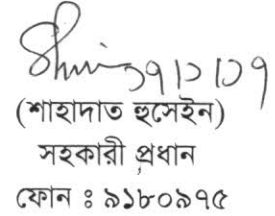 (শাহাদাত হুসেইন)
সহকারী প্রধান
ফোন ঃ ৯১৮০৯৭৫